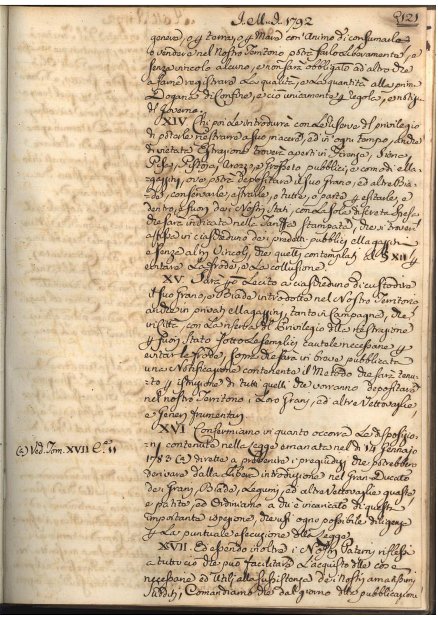 A. M. D. 1792
121
genere, o p terra, o p Mare con Animo di consumarlo,
o vendere nel Nostro Territorio potrà farlo liberamente, e
senza vincolo alcuno, e non sarà obbligato ad altro che
a farne registrare la qualità, e la quantità alla prima
Dogana di Confine, e ciò unicamente p regola, e notizia
del Governo.
XIV. Chi poi le introdurrà con la riserva del privilegio
di poterle riestrarre a suo piacere, ed in ogni tempo, anche
di vietata estrazione troverà aperti in Firenze, Siena
Pisa, Pistoja, Arezzo, e Grosseto pubblici, e comodi ella
gazzini, ove potrà depositare il suo Grano, ed altre Bia
de, conservarle, estrarle, o tutte, o parte p esitarle, e
dentro, e fuori dei Nostri Stati, con la sola discreta spesa
che sarà indicata nella Tariffa stampata, che si troverà
affissa in ciascheduno dei predetti pubblici ellagazzini
e senza altri Vincoli, che quelli contemplati all' § XII p
evitare la frode, e la collusione.
XV. Sarà pure lecito a ciascheduno di custodire
il suo Grano, e Biade introdotte nel Nostro Territorio
anche in privati ellagazzini, tanto in Campagna, che
in Città, con la riserva del Privilegio della riestrazione
p fuori Stato sotto le semplici cautele necessarie p
evitar le frodi, come che sarà in breve pubblicata
una Notificazione contenente il Metodo che sarà tenu
to p istruzione di tutti quelli che vorranno depositare
nel nostro Territorio i Loro Grani, ed altre Vettovaglie
e Generi frumentari.
XVI. Confermiamo in quanto occorra la disposizio
ne contenuta nella Legge emanata nel dì 14 Gennaro
(a) Ved. Tom. XVII C. 11
178 (a) diretta a prevenire i pregiudizi che potrebbero
derivare dalla libera introduzione nel Gran Ducato
dei Grani, Biade, Legumi, ed altre Vettovaglie guaste
e patite, ed Ordiniamo a chi è incaricato di questa
importante ispezione, che usi ogni possibile diligenza
p la puntuale esecuzione della Legge.
XVII. Ed essendo inoltre i Nostri Paterni riflessi
a tutto ciò che può facilitare l'acquisto delle cose
necessarie ed utili alla sussistenza dei Nostri amatissimi
Sudditi, Comandiamo che dal giorno della pubblicazione